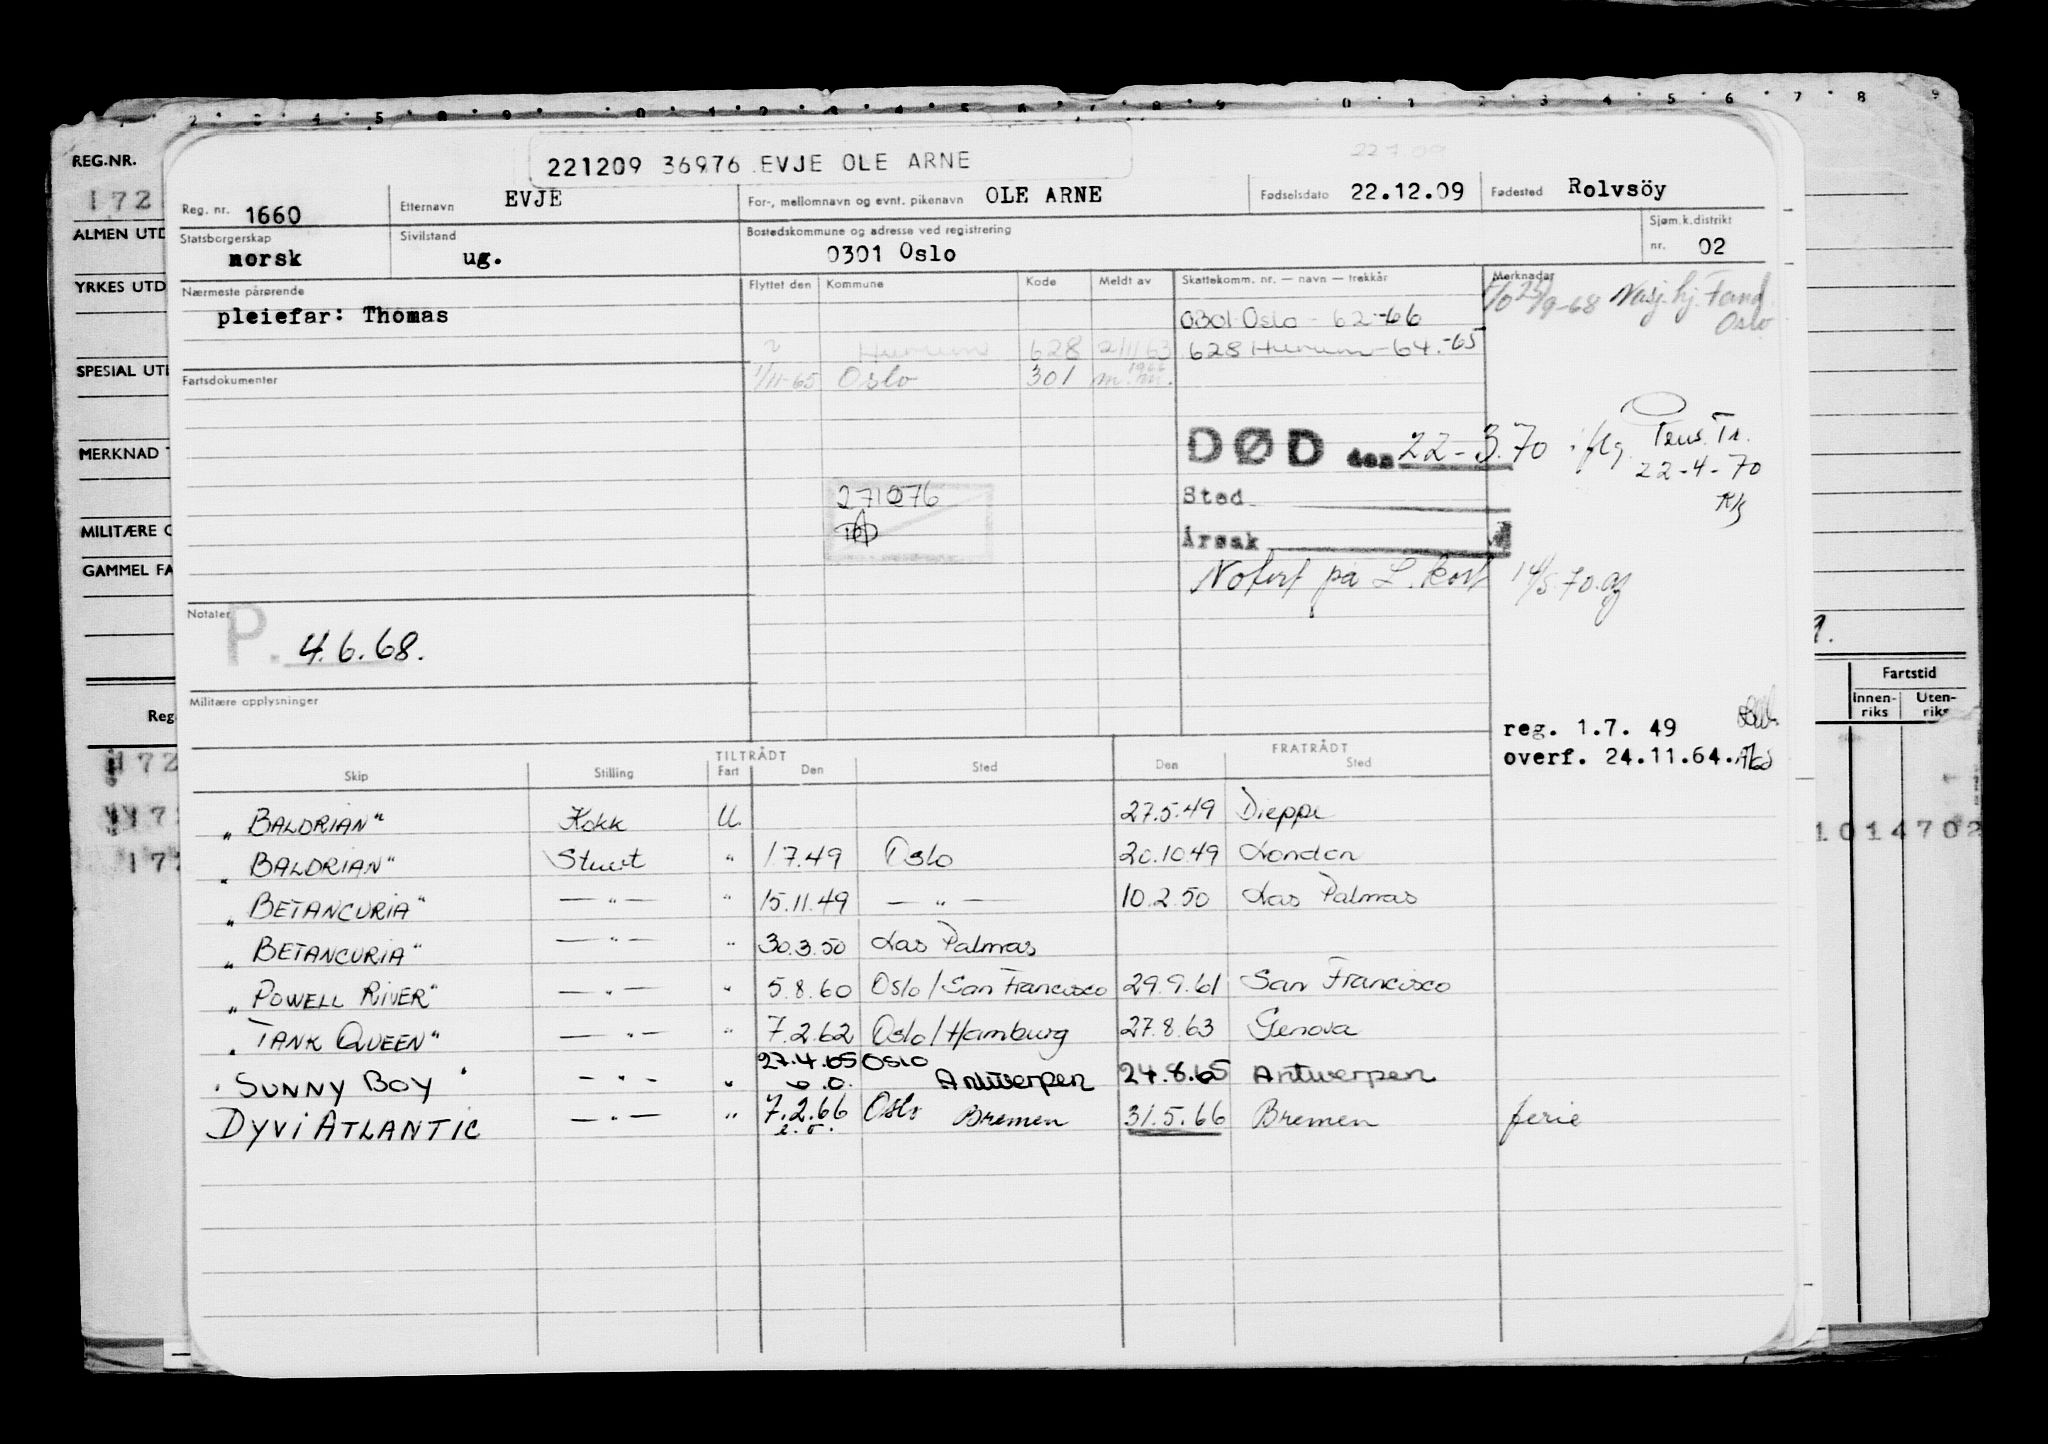 REG.NR.
172
ALMEN UTD
YRKES UTD
SPECIAL UTD
MERKNAD T
MILITÆRE O
GAMMEL FA
221209 36976 EVJE OLE ARNE
Reg. nr. 1660 Etternavn EVJE For-, mellomnavn og evnt. pikenavn OLE ARNE Fødselsdato 22.12.09 Fødested Rolvsöy
Statsborgerskap norsk Sivilstand ug. Bostedskommune og adresse ved registrering 0301 Oslo Sjøm.k.distrikt nr. 02
Nærmeste pårørende Flyttet den Kommune Kode Meldt av Skattekomm. nr. — navn — trekkår Merknader
pleiefar: Thomas 0301 Oslo - 62-66 25/9-68 Nasj. hj. Fond Oslo
Hurum 628 2/11 63 628 Hurum - 64.-65
Fartsdokumenter 1/11-65 Oslo 301 m.m. 1966
DØD den 22-3.70 iflg. Pens. Tr.
22-4-70
271076
Sted
Årsak
Notert på L. kort 14/5.70.
Notater
P. 4.6.68.
Militære opplysninger
reg. 1.7. 49
overf. 24.11.64.
TILTRÅDT FRATRÅDT
Skip Stilling Fart Den Sted Den Sted
„BALDRIAN" Kokk U. 27.5.49 Dieppe
„BALDRIAN" Stuert " 1.7.49 Oslo 20.10.49 London
„BETANCURIA" — " — " 15.11.49 — " — 10.2.50 Las Palmas
„BETANCURIA" — " — " 30.3.50 Las Palmas
„POWELL RIVER" — " — " 5.8.60 Oslo/San Francisco 29.9.61 San Francisco
„TANK QUEEN" — " — " 7.2.62 Oslo/Hamburg 27.8.63 Genova
SUNNY BOY - " - " 27.4.65 Oslo Antwerpen 24.8.65 Antwerpen
DYVI ATLANTIC — " — " 7.2.66 Oslo Bremen 31.5.66 Bremen ferie
Reg.
172
172
172
Fartstid
Innen-riks Uten-riks
1014702